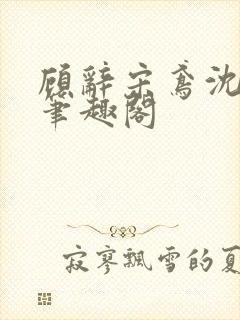 顾辞宋鸢沈
笔趣阁
寂寥飘雪的夏